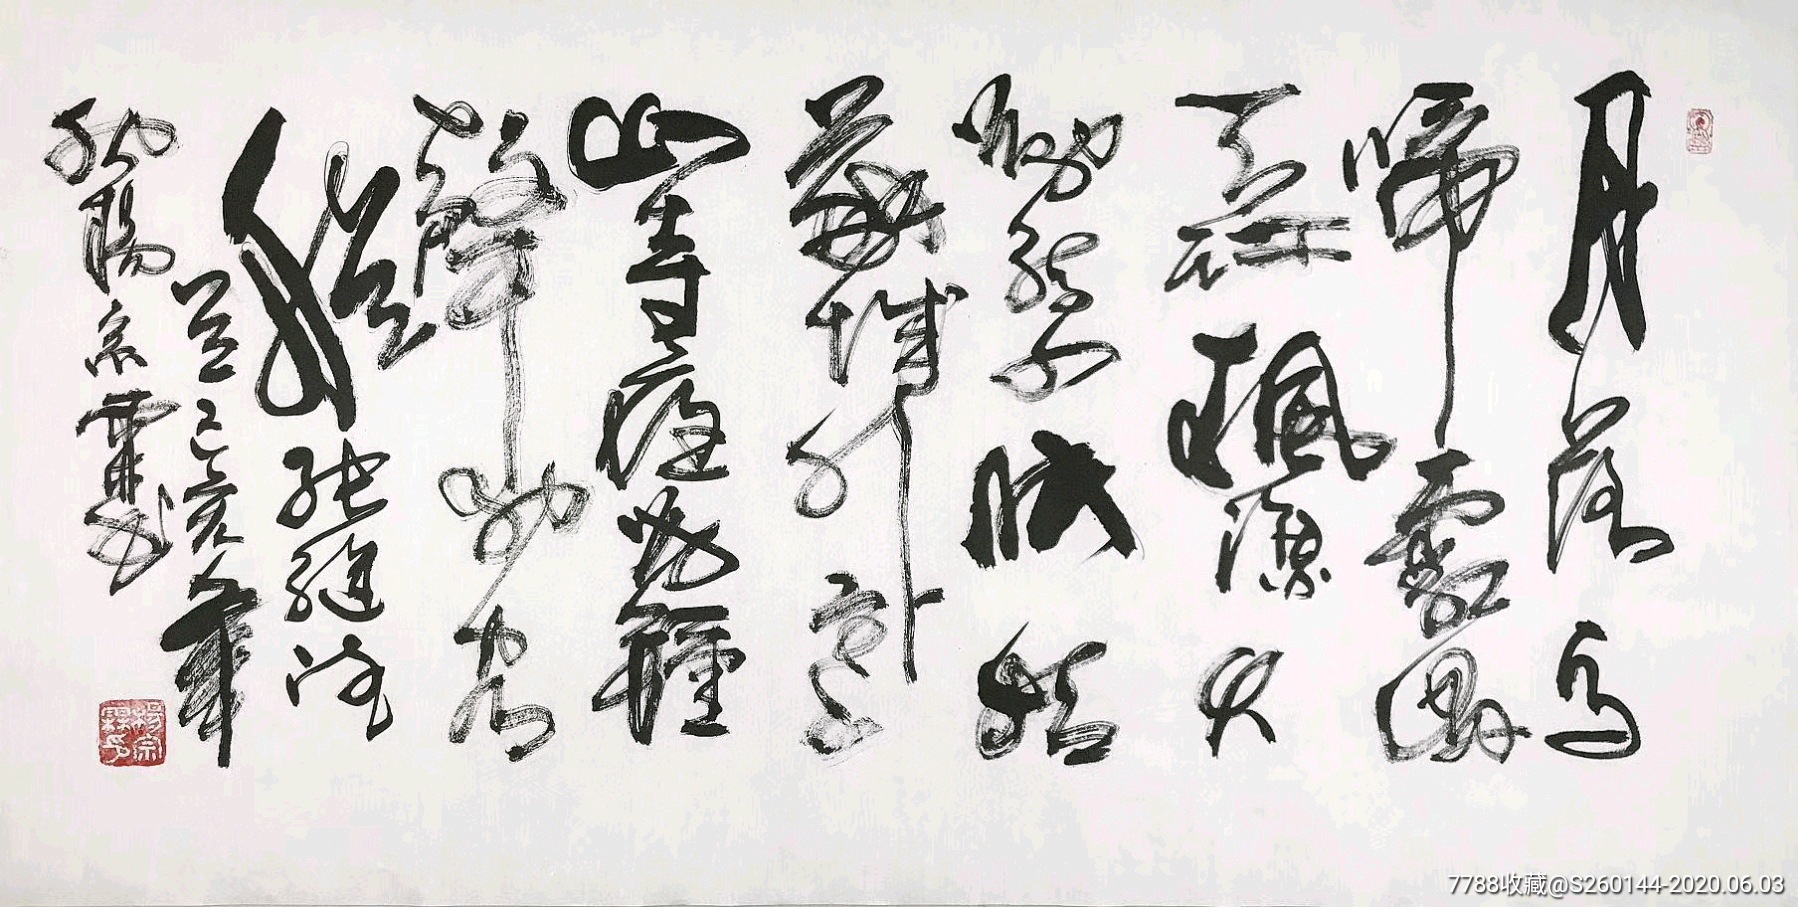 月落烏
啼霜滿
天江楓漁火
對愁眠姑
蘇城外寒
山寺夜半鐘
聲到客
船張繼詩
己亥年
宗
7788收藏@S260144-2020.06.03